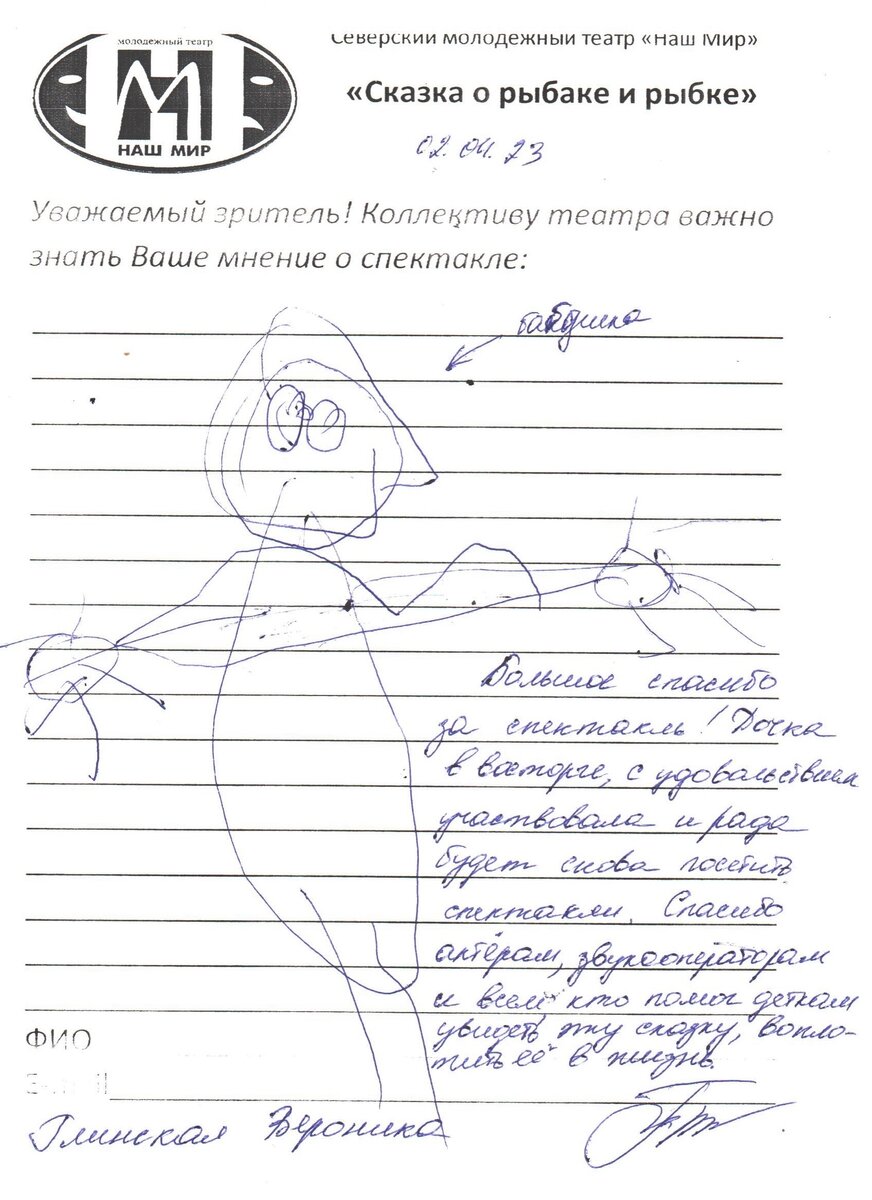 молодежный театр
НАШ МИР
Северский молодежный театр «Наш Мир»
«Сказка о рыбаке и рыбке»
02.04.23
Уважаемый зритель! Коллективу театра важно
знать Ваше мнение о спектакле:
бабушка
Большое спасибо
за спектакль! Дочка
в восторге, с удовольствием
участвовала и рада
будет снова посетить
спектакли. Спасибо
актёрам, звукооператорам
и всем, кто помог деткам
увидеть эту сказку, вопло-
тить её в жизнь.
ФИО
E-mail
Глинская Вероника